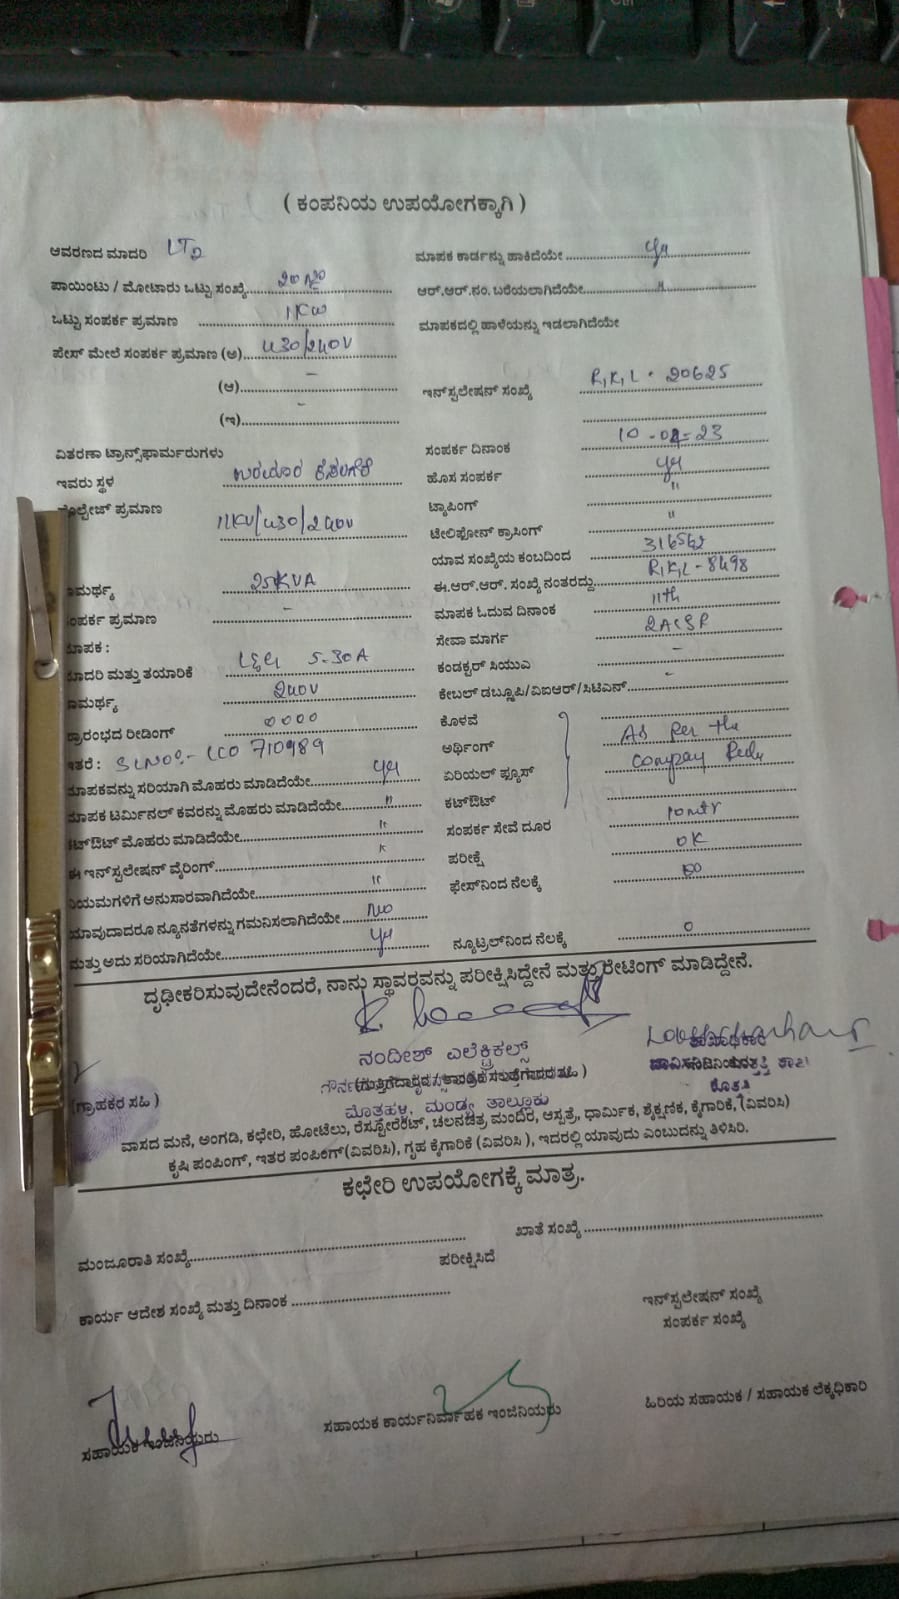 ( ಕಂಪನಿಯ ಉಪಯೋಗಕ್ಕಾಗಿ )
ಆವರಣದ ಮಾದರಿ LT2
ಪಾಯಿಂಟು / ಮೋಟಾರು ಒಟ್ಟು ಸಂಖ್ಯೆ
ಒಟ್ಟು ಸಂಪರ್ಕ ಪ್ರಮಾಣ 1KW
ಪೇಸ್ ಮೇಲೆ ಸಂಪರ್ಕ ಪ್ರಮಾಣ (ಅ) 430/240V
(ಆ) -
(ಇ) -
ವಿತರಣಾ ಟ್ರಾನ್ಸ್‌ಫಾರ್ಮರುಗಳು
ಇವರು ಸ್ಥಳ
ಪ್ರಮಾಣ 11KV/430/240V
25KVA
ಪ್ರಮಾಣ -
ಮತ್ತು ತಯಾರಿಕೆ 5-30A
240V
ರೀಡಿಂಗ್ 0000
SLNO:- 710989
ಸರಿಯಾಗಿ ಮೊಹರು ಮಾಡಿದೆಯೇ yes
ಟರ್ಮಿನಲ್ ಕವರನ್ನು ಮೊಹರು ಮಾಡಿದೆಯೇ "
ಮೊಹರು ಮಾಡಿದೆಯೇ "
ಈ ಇನ್‌ಸ್ಟಲೇಷನ್ ವೈರಿಂಗ್ "
ಅನುಸಾರವಾಗಿದೆಯೇ "
ಯಾವುದಾದರೂ ನ್ಯೂನತೆಗಳನ್ನು ಗಮನಿಸಲಾಗಿದೆಯೇ No
ಮತ್ತು ಅದು ಸರಿಯಾಗಿದೆಯೇ yes
ಮಾಪಕ ಕಾರ್ಡನ್ನು ಹಾಕಿದೆಯೇ yes
ಆರ್.ಆರ್.ನಂ. ಬರೆಯಲಾಗಿದೆಯೇ "
ಮಾಪಕದಲ್ಲಿ ಹಾಳೆಯನ್ನು ಇಡಲಾಗಿದೆಯೇ
ಇನ್‌ಸ್ಟಲೇಷನ್ ಸಂಖ್ಯೆ R,K,L - 20625
ಸಂಪರ್ಕ ದಿನಾಂಕ
ಹೊಸ ಸಂಪರ್ಕ yes
ಟ್ಯಾಪಿಂಗ್ "
ಟೇಲಿಫೋನ್ ಕ್ರಾಸಿಂಗ್ "
ಯಾವ ಸಂಖ್ಯೆಯ ಕಂಬದಿಂದ 316562
ಈ.ಆರ್.ಆರ್. ಸಂಖ್ಯೆ ನಂತರದ್ದು R,K,L - 8498
ಮಾಪಕ ಓದುವ ದಿನಾಂಕ 11th
ಸೇವಾ ಮಾರ್ಗ 2ACSR
ಕಂಡಕ್ಟರ್ ಸಿಯುಎ -
ಕೇಬಲ್ ಡಬ್ಲ್ಯೂಪಿ/ವಿಐಆರ್/ಸಿಟಿಎಸ್ -
ಕೊಳವೆ
ಅರ್ಥಿಂಗ್ As per the
ಏರಿಯಲ್ ಫ್ಯೂಸ್ company
ಕಟ್‌ಔಟ್
ಸಂಪರ್ಕ ಸೇವೆ ದೂರ 10mtr
ಪರೀಕ್ಷೆ OK
ಫೇಸ್‌ನಿಂದ ನೆಲಕ್ಕೆ
ನ್ಯೂಟ್ರಲ್‌ನಿಂದ ನೆಲಕ್ಕೆ 0
ದೃಢೀಕರಿಸುವುದೇನೆಂದರೆ, ನಾನು ಸ್ಥಾವರವನ್ನು ಪರೀಕ್ಷಿಸಿದ್ದೇನೆ ಮತ್ತು ರೇಟಿಂಗ್ ಮಾಡಿದ್ದೇನೆ.
ನಂದೀಶ್ ಎಲೆಕ್ಟ್ರಿಕಲ್ಸ್
ಮಂಡ್ಯ ತಾಲ್ಲೂಕು
(ಗ್ರಾಹಕರ ಸಹಿ )
ವಾಸದ ಮನೆ, ಅಂಗಡಿ, ಕಛೇರಿ, ಹೋಟೆಲು, ರೆಸ್ಟೋರೆಂಟ್, ಚಲನಚಿತ್ರ ಮಂದಿರ, ಆಸ್ಪತ್ರೆ, ಧಾರ್ಮಿಕ, ಶೈಕ್ಷಣಿಕ, ಕೈಗಾರಿಕೆ, (ವಿವರಿಸಿ)
ಕೃಷಿ ಪಂಪಿಂಗ್, ಇತರ ಪಂಪಿಂಗ್(ವಿವರಿಸಿ), ಗೃಹ ಕೈಗಾರಿಕೆ (ವಿವರಿಸಿ ), ಇದರಲ್ಲಿ ಯಾವುದು ಎಂಬುದನ್ನು ತಿಳಿಸಿರಿ.
ಕಛೇರಿ ಉಪಯೋಗಕ್ಕೆ ಮಾತ್ರ.
ಮಂಜೂರಾತಿ ಸಂಖ್ಯೆ
ಖಾತೆ ಸಂಖ್ಯೆ
ಪರೀಕ್ಷಿಸಿದೆ
ಕಾರ್ಯ ಆದೇಶ ಸಂಖ್ಯೆ ಮತ್ತು ದಿನಾಂಕ
ಇನ್‌ಸ್ಟಲೇಷನ್ ಸಂಖ್ಯೆ
ಸಂಪರ್ಕ ಸಂಖ್ಯೆ
ಸಹಾಯಕ ಇಂಜಿನಿಯರು
ಸಹಾಯಕ ಕಾರ್ಯನಿರ್ವಾಹಕ ಇಂಜಿನಿಯರು
ಹಿರಿಯ ಸಹಾಯಕ / ಸಹಾಯಕ ಲೆಕ್ಕಧಿಕಾರಿ